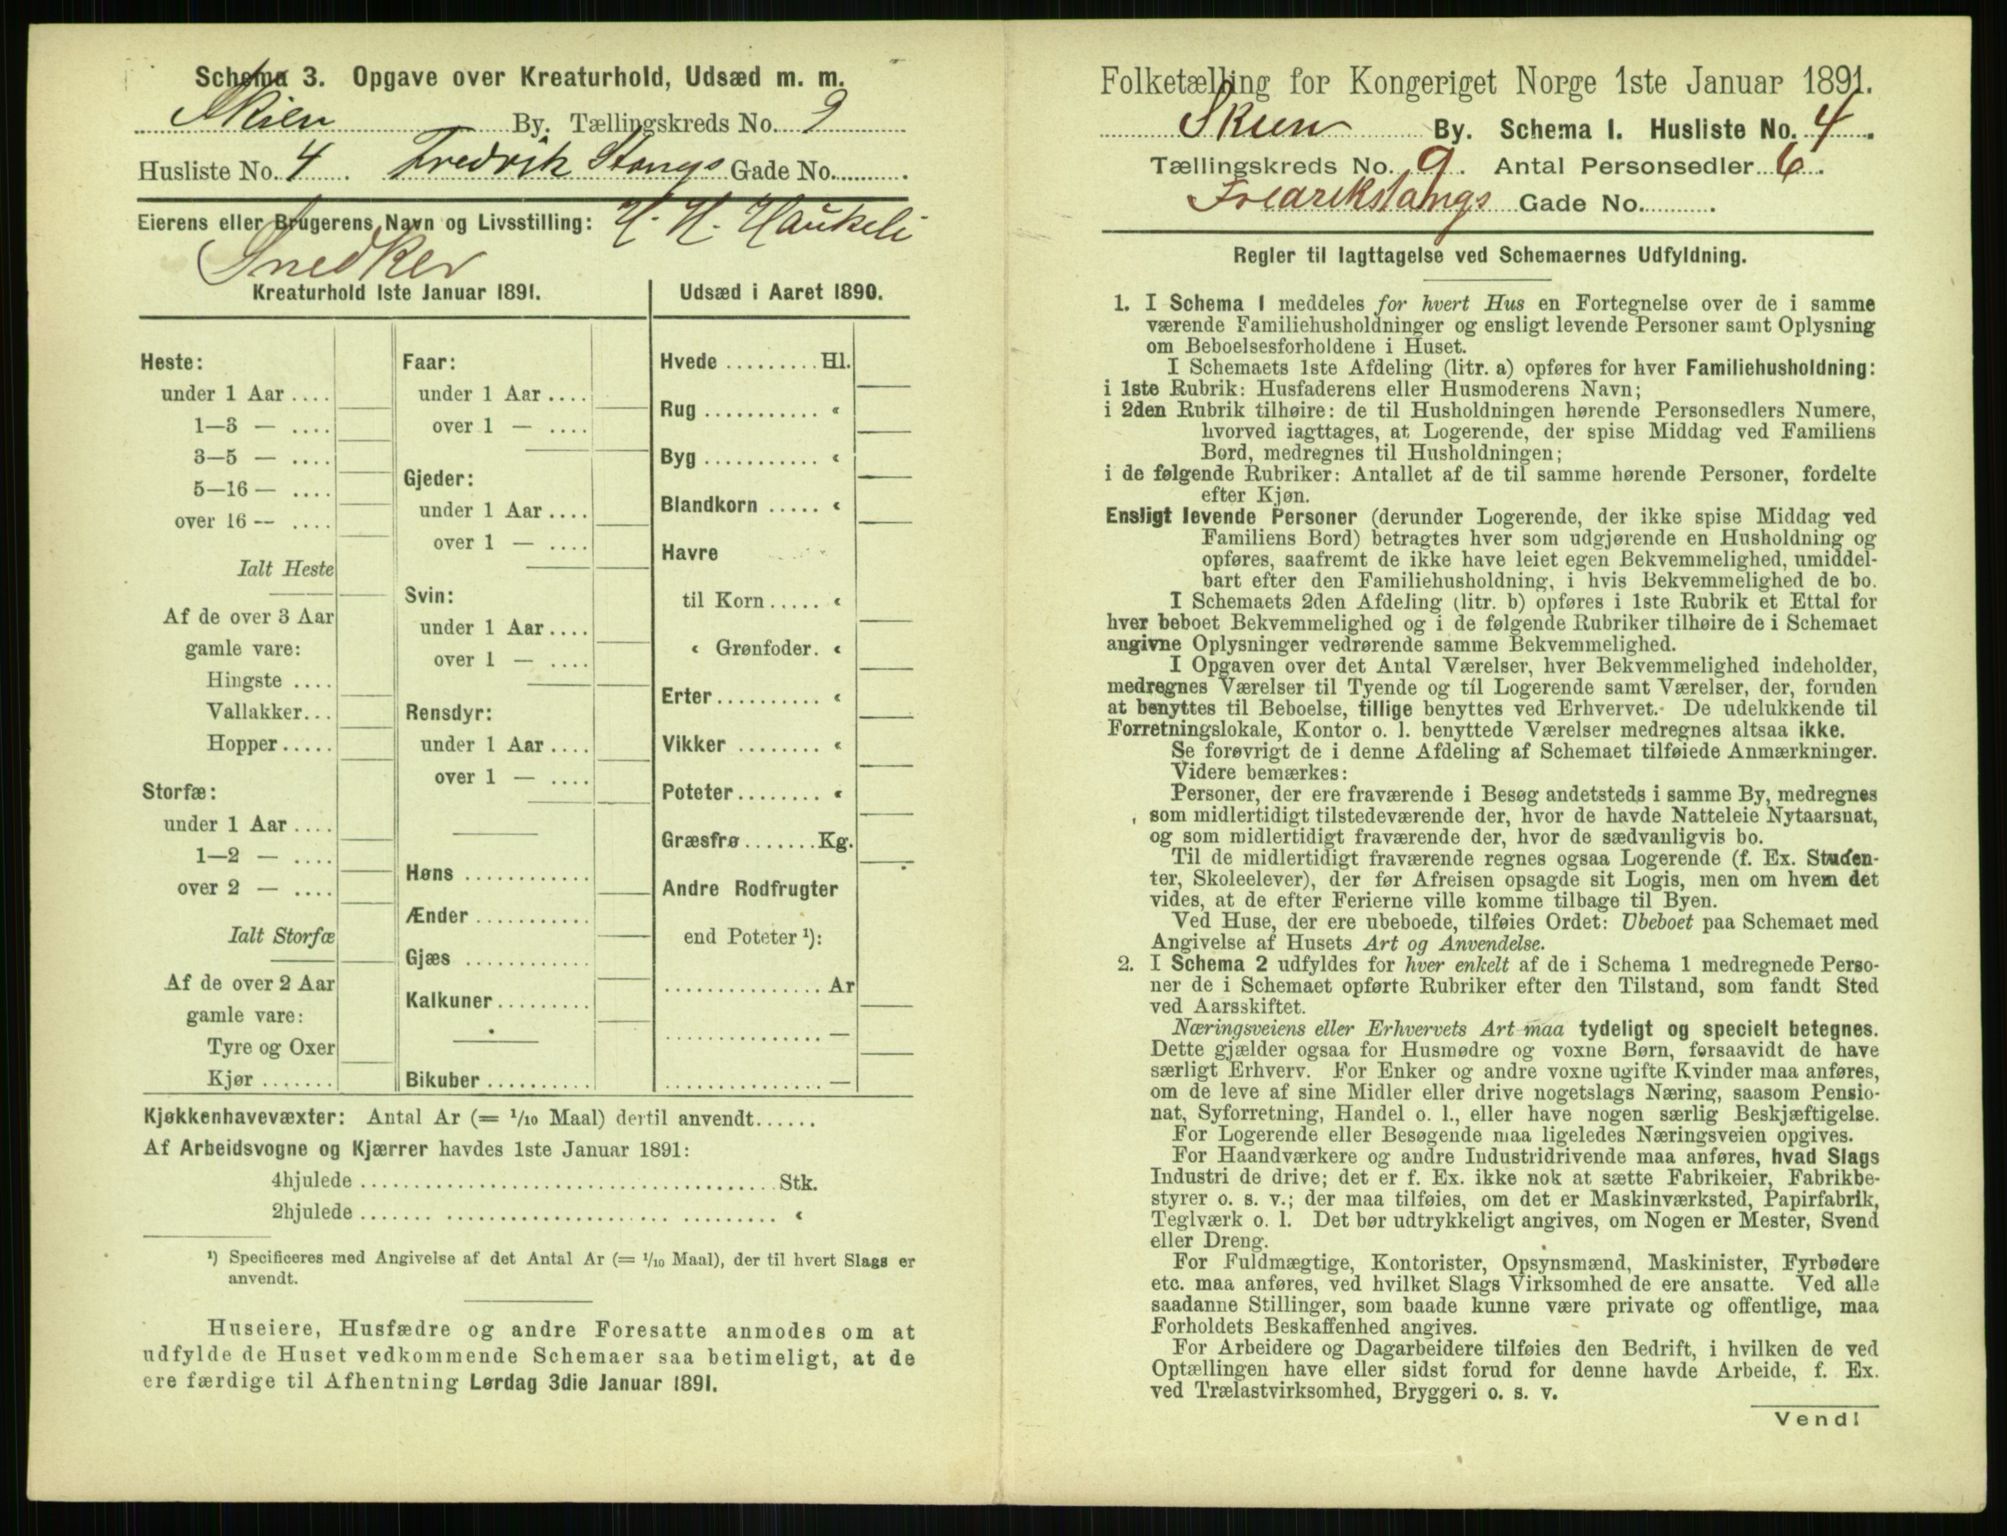 Schema 3. Opgave over Kreaturhold, Udsæd m. m.
Skien By. Tællingskreds No. 9
Husliste No. 4 Fredrik Stangs Gade No.
Eierens eller Brugerens Navn og Livsstilling: H. H. Haukeli
Snedker
Kreaturhold 1ste Januar 1891.
Heste:
under 1 Aar ....
1—3 — ....
3—5 — ....
5—16 — ....
over 16 — ....
Ialt Heste
Af de over 3 Aar
gamle vare:
Hingste ....
Vallakker...
Hopper.....
Storfæ:
under 1 Aar ....
1—2 — ....
over 2 — ....
Ialt Storfæ
Af de over 2 Aar
gamle vare:
Tyre og Oxer
Kjør .......
Faar:
under 1 Aar ....
over 1 — ....
Gjeder:
under 1 Aar ....
over 1 — ....
Svin:
under 1 Aar ....
over 1 — ....
Rensdyr:
under 1 Aar ....
over 1 — ....
Høns ............
Ænder ...........
Gjæs ............
Kalkuner.........
Bikuber..........
Udsæd i Aaret 1890.
Hvede ......... Hl.
Rug ........... «
Byg ........... «
Blandkorn ..... «
Havre
til Korn..... «
« Grønfoder. «
Erter.......... «
Vikker ........ «
Poteter........ «
Græsfrø....... Kg.
Andre Rodfrugter
end Poteter ¹):
............... Ar
............... —
............... —
Kjøkkenhavevæxter: Antal Ar (= 1/10 Maal) dertil anvendt......
Af Arbeidsvogne og Kjærrer havdes 1ste Januar 1891:
4hjulede ..................................... Stk.
2hjulede ..................................... «
¹) Specificeres med Angivelse af det Antal Ar (= 1/10 Maal), der til hvert Slags er
anvendt.
Huseiere, Husfædre og andre Foresatte anmodes om at
udfylde de Huset vedkommende Schemaer saa betimeligt, at de
ere færdige til Afhentning Lørdag 3die Januar 1891.
Folketælling for Kongeriget Norge 1ste Januar 1891.
Skien By. Schema I. Husliste No. 4.
Tællingskreds No. 9. Antal Personsedler 6.
Fredrikstangs Gade No.
Regler til Iagttagelse ved Schemaernes Udfyldning.
1. I Schema 1 meddeles for hvert Hus en Fortegnelse over de i samme
værende Familiehusholdninger og ensligt levende Personer samt Oplysning
om Beboelsesforholdene i Huset.
I Schemaets 1ste Afdeling (litr. a) opføres for hver Familiehusholdning:
i 1ste Rubrik: Husfaderens eller Husmoderens Navn;
i 2den Rubrik tilhøire: de til Husholdningen hørende Personsedlers Numere,
hvorved iagttages, at Logerende, der spise Middag ved Familiens
Bord, medregnes til Husholdningen;
i de følgende Rubriker: Antallet af de til samme hørende Personer, fordelte
efter Kjøn.
Ensligt levende Personer (derunder Logerende, der ikke spise Middag ved
Familiens Bord) betragtes hver som udgjørende en Husholdning og
opføres, saafremt de ikke have leiet egen Bekvemmelighed, umiddel-
bart efter den Familiehusholdning, i hvis Bekvemmelighed de bo.
I Schemaets 2den Afdeling (litr. b) opføres i 1ste Rubrik et Ettal for
hver beboet Bekvemmelighed og i de følgende Rubriker tilhøire de i Schemaet
angivne Oplysninger vedrørende samme Bekvemmelighed.
I Opgaven over det Antal Værelser, hver Bekvemmelighed indeholder,
medregnes Værelser til Tyende og til Logerende samt Værelser, der, foruden
at benyttes til Beboelse, tillige benyttes ved Erhvervet. De udelukkende til
Forretningslokale, Kontor o. l. benyttede Værelser medregnes altsaa ikke.
Se forøvrigt de i denne Afdeling af Schemaet tilføiede Anmærkninger.
Videre bemærkes:
Personer, der ere fraværende i Besøg andetsteds i samme By, medregnes
som midlertidigt tilstedeværende der, hvor de havde Natteleie Nytaarsnat,
og som midlertidigt fraværende der, hvor de sædvanligvis bo.
Til de midlertidigt fraværende regnes ogsaa Logerende (f. Ex. Studen-
ter, Skoleelever), der før Afreisen opsagde sit Logis, men om hvem det
vides, at de efter Ferierne ville komme tilbage til Byen.
Ved Huse, der ere ubeboede, tilføies Ordet: Ubeboet paa Schemaet med
Angivelse af Husets Art og Anvendelse.
2. I Schema 2 udfyldes for hver enkelt af de i Schema 1 medregnede Perso-
ner de i Schemaet opførte Rubriker efter den Tilstand, som fandt Sted
ved Aarsskiftet.
Næringsveiens eller Erhvervets Art maa tydeligt og specielt betegnes.
Dette gjælder ogsaa for Husmødre og voxne Børn, forsaavidt de have
særligt Erhverv. For Enker og andre voxne ugifte Kvinder maa anføres,
om de leve af sine Midler eller drive nogetslags Næring, saasom Pensio-
nat, Syforretning, Handel o. l., eller have nogen særlig Beskjæftigelse.
For Logerende eller Besøgende maa ligeledes Næringsveien opgives.
For Haandværkere og andre Industridrivende maa anføres, hvad Slags
Industri de drive; det er f. Ex. ikke nok at sætte Fabrikeier, Fabrikbe-
styrer o. s. v.; der maa tilføies, om det er Maskinværksted, Papirfabrik,
Teglværk o. l. Det bør udtrykkeligt angives, om Nogen er Mester, Svend
eller Dreng.
For Fuldmægtige, Kontorister, Opsynsmænd, Maskinister, Fyrbødere
etc. maa anføres, ved hvilket Slags Virksomhed de ere ansatte. Ved alle
saadanne Stillinger, som baade kunne være private og offentlige, maa
Forholdets Beskaffenhed angives.
For Arbeidere og Dagarbeidere tilføies den Bedrift, i hvilken de ved
Optællingen have eller sidst forud for denne havde Arbeide, f. Ex.
ved Trælastvirksomhed, Bryggeri o. s. v.
Vend!